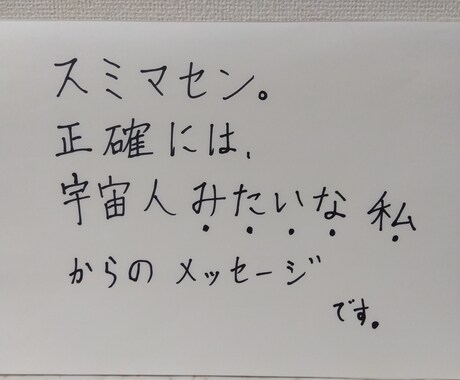 スミマセン。
正確には、
宇宙人みたいな私
からのメッセージ
です。